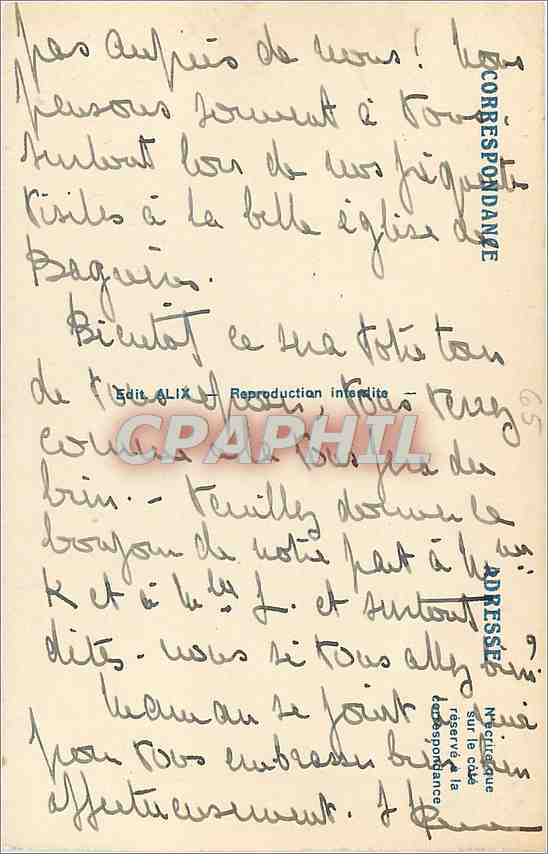 pas auprès de nous! Nous
pensons souvent à vous.
surtout lors de nos fréquentes
visites à la belle église de
Bagnères.
Bientôt ce sera votre tour
de vous reposer, vous verrez
comme cela vous fera du
bien. - Veuillez donner le
bonjour de notre part à Mme
K et à Mlle J. et surtout
dites-nous si vous allez bien.
Maman se joint à moi
pour vous embrasser bien bien
affectueusement.
CORRESPONDANCE
Edit. ALIX - Reproduction interdite -
ADRESSE
N'écrire que
sur le côté
réservé à la
correspondance
65
CPAPHIL